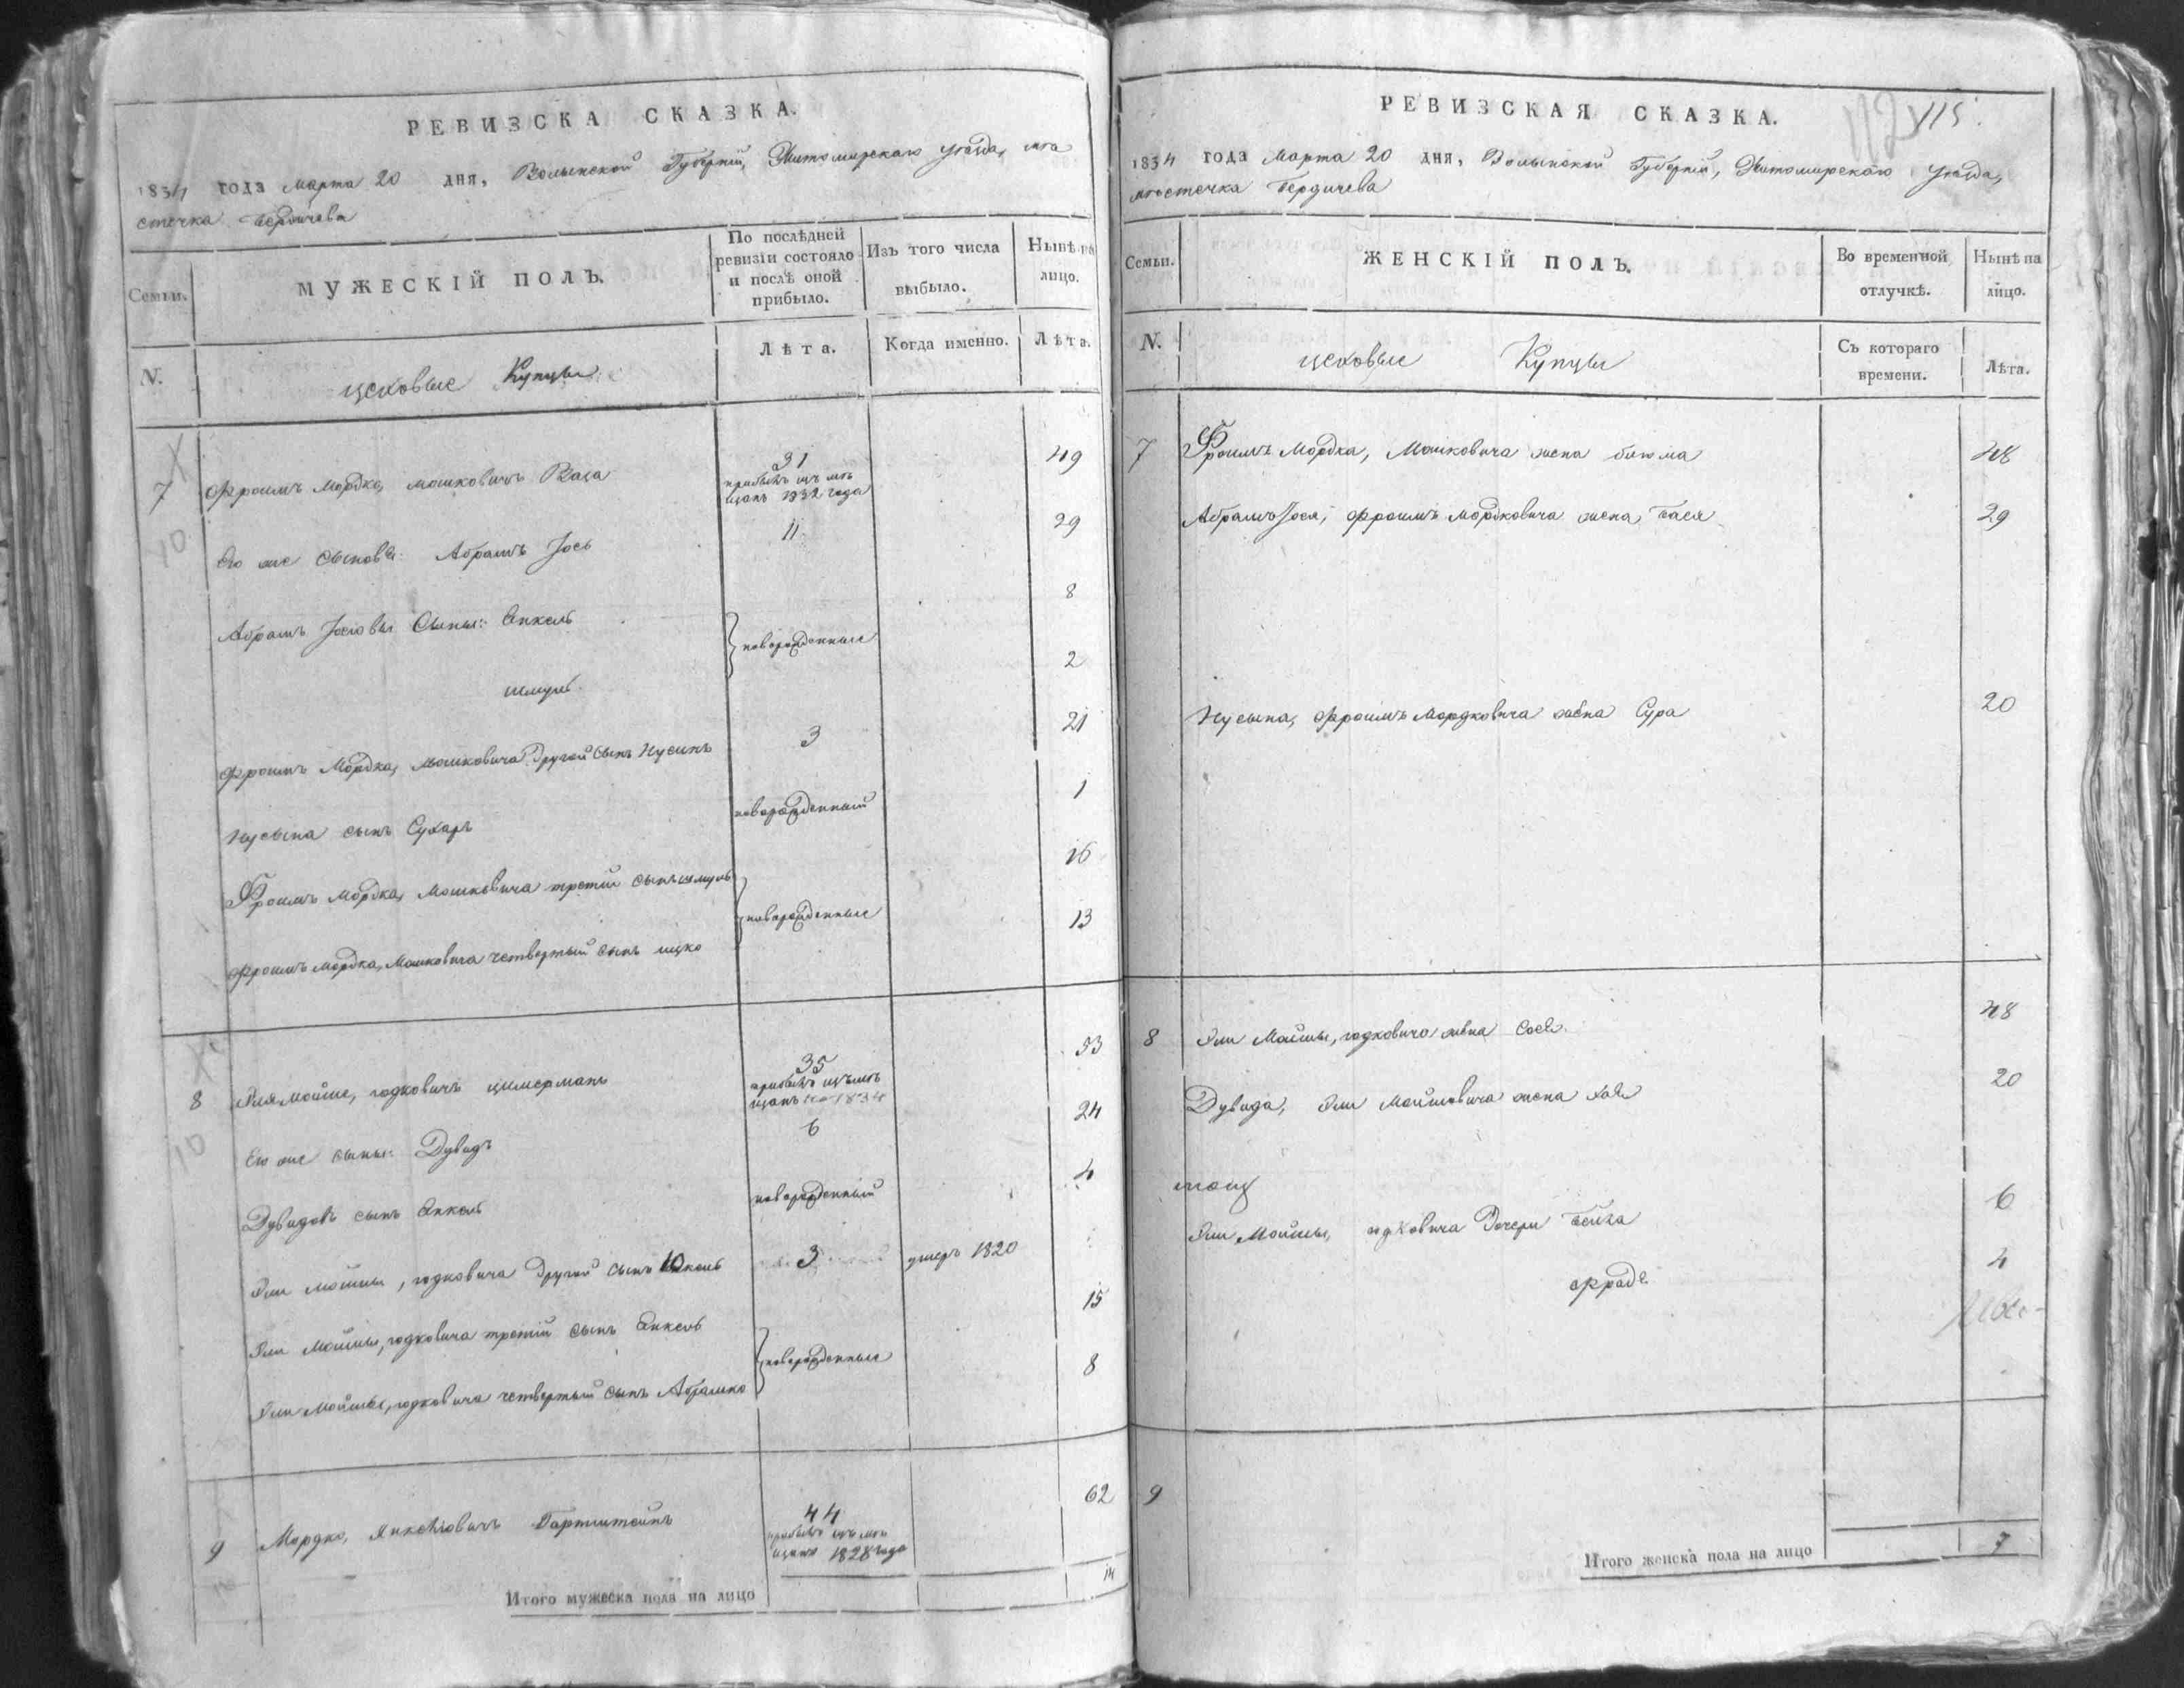 РЕВИЗСКА СКАЗКА.
1834 года Марта 20 дня, Волынской Губерніи, Житомирскаго уѣзда, мѣ
стечка Бердичева
Семьи.
МУЖЕСКІЙ ПОЛЪ.
По послѣдней
ревизіи состояло
и послѣ оной
прибыло.
Изъ того числа
выбыло.
Нынѣ на
лицо.
N.
цеховые Купцы
Лѣта.
Когда именно.
Лѣта.
7 Фроимъ Мордко, Мошковичъ 31 49
прибылъ изъ мѣ
щанъ 1832 года
10
Его же сыновья: Абрамъ Іось 11 29
Абрамъ Іосіовы Сыны: Янкель 8
новорожденные
Шмуль 2
Фроимъ Мордка, Мошковича другой сынъ Нусинъ 3 21
Нусына сынъ Сухаръ новорожденный 1
Фроимъ Мордка, Мошковича третій сынъ Шмуль 16
новорожденные
Фроимъ Мордка, Мошковича четвертый сынъ Ицко 13
8 Эля Мойше, Юдковичъ Цимерманъ 35 53
прибылъ изъ мѣ
щанъ 1834
10
Его же сыны: Дувидъ 6 24
Дувидовъ сынъ Янкель новорожденный 4
Эли Мойшы, Юдковича другой сынъ 3 умеръ 1820
Эли Мойшы, Юдковича третій сынъ Янкель 15
новорожденные
Эли Мойшы, Юдковича четвертый сынъ Абрашко 8
9 Мордко, Янкеліовичъ 44 62
прибылъ изъ мѣ
щанъ 1828 года
Итого мужеска пола на лицо 14
РЕВИЗСКАЯ СКАЗКА.
112 115
1834 года Марта 20 дня, Волынской Губерніи, Житомирскаго уѣзда,
мѣстечка Бердичева
Семьи.
ЖЕНСКІЙ ПОЛЪ.
Во временной
отлучкѣ.
Нынѣ на
лицо.
N.
цеховые Купцы
Съ котораго
времени.
Лѣта.
7 Фроимъ Мордка, Мошковича жена Блюма 48
Абрамъ Іося, Фроимъ Мордковича жена, Бася 29
Нусына, Фроимъ Мордковича жена Сура 20
8 Эли Мойшы, Юдковича жена Сося 48
Дувида, Эли Мойшовича жена Хая 20
Эли Мойшы, Юдковича дочери Бейла 6
Фрада 4
9
Итого женска пола на лицо 7